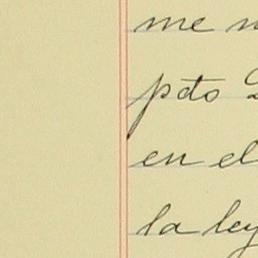 me
pdo
en el
la ley